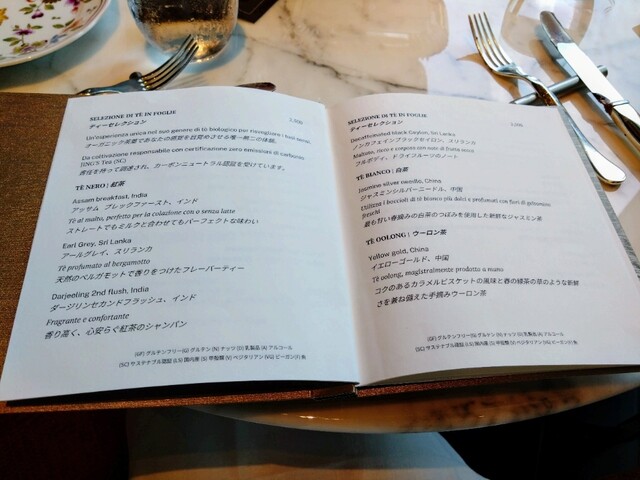 SELEZIONE DI TÈ IN FOGLIE
ティーセレクション
Un'esperienza unica nel suo genere di tè biologico per risvegliare i tuoi sensi.
オーガニック茶葉であなたの感覚を目覚めさせる唯一無二の体験。
Da coltivazione responsabile con certificazione zero emissioni di carbonio
JING'S Tea (SC)
責任を持って調達され、カーボンニュートラル認証を受けています。
TÈ NERO | 紅茶
Assam breakfast, India
アッサム ブレックファースト、インド
Tè al malto, perfetto per la colazione con o senza latte
ストレートでもミルクと合わせてもパーフェクトな味わい
Earl Grey, Sri Lanka
アールグレイ、スリランカ
Tè profumato al bergamotto
天然のベルガモットで香りをつけたフレーバーティー
Darjeeling 2nd flush, India
ダージリンセカンドフラッシュ、インド
Fragrante e confortante
香り高く、心安らぐ紅茶のシャンパン
(GF) グルテンフリー (G) グルテン (N) ナッツ (D) 乳製品 (A) アルコール
(SC) サステナブル認証 (LS) 国内産 (S) 甲殻類 (V) ベジタリアン (VG) ビーガン (F) 魚
SELEZIONE DI TÈ IN FOGLIE
ティーセレクション
Decaffeinated black Ceylon, Sri Lanka
ノンカフェインブラックセイロン、スリランカ
Maltoso, ricco e corposo con note di frutta secca
フルボディ、ドライフルーツのノート
TÈ BIANCO | 白茶
Jasmine silver needle, China
ジャスミンシルバーニードル、中国
Utilizza i boccioli di tè bianco più dolci e profumati con fiori di gelsomino
freschi
最も甘い春摘みの白茶のつぼみを使用した新鮮なジャスミン茶
TÈ OOLONG | ウーロン茶
Yellow gold, China
イエローゴールド、中国
Tè oolong, magistralmente prodotto a mano
コクのあるカラメルビスケットの風味と春の緑茶の草のような新鮮
さを兼ね備えた手摘みウーロン茶
(GF) グルテンフリー (G) グルテン (N) ナッツ (D) 乳製品 (A) アルコール
(SC) サステナブル認証 (LS) 国内産 (S) 甲殻類 (V) ベジタリアン (VG) ビーガン (F) 魚